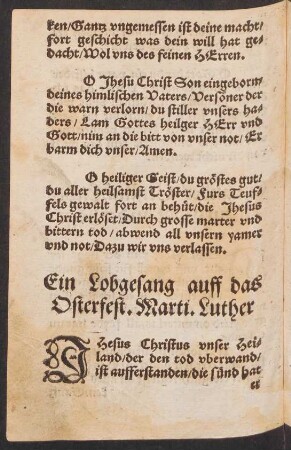 ken/Gantz vngemessen ist deine macht/
fort geschicht was dein will hat ge-
dacht/Wol vns des feinen HErren.
O Jhesu Christ Son eingeborn/
deines himlischen Vaters/Versöner der
die warn verlorn/du stiller vnsers ha-
ders/Lam Gottes heilger HErr vnd
Gott/nim an die bitt von vnser not/Er
barm dich vnser/Amen.
O heiliger Geist/du gröstes gut/
du aller heilsamst Tröster/Furs Teuf-
fels gewalt fort an behüt/die Jhesus
Christ erlöset/Durch grosse marter vnd
bittern tod/abwend all vnsern yamer
vnd not/Dazu wir vns verlassen.
Ein Lobgesang auff das
Osterfest. Marti. Luther
JHesus Christus vnser Hei-
land/der den tod vberwand/
ist aufferstanden/die sünd hat
er